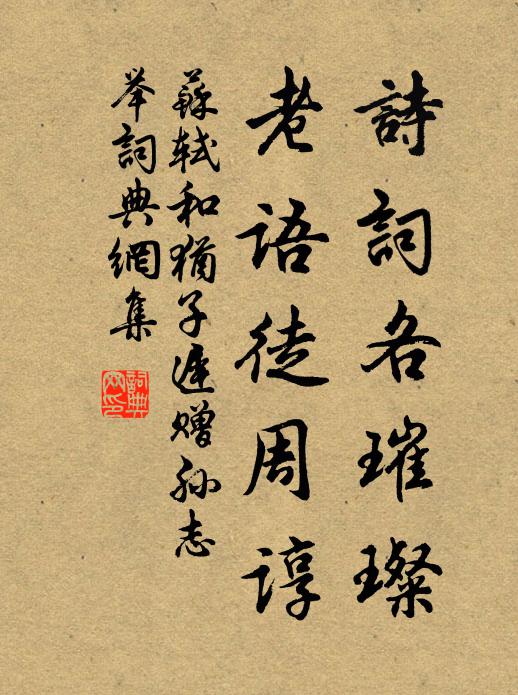 詩詞各璀璨
老語徒周諄
蘇軾和猶子遲贈孫志
举詞典網集
詞典網印